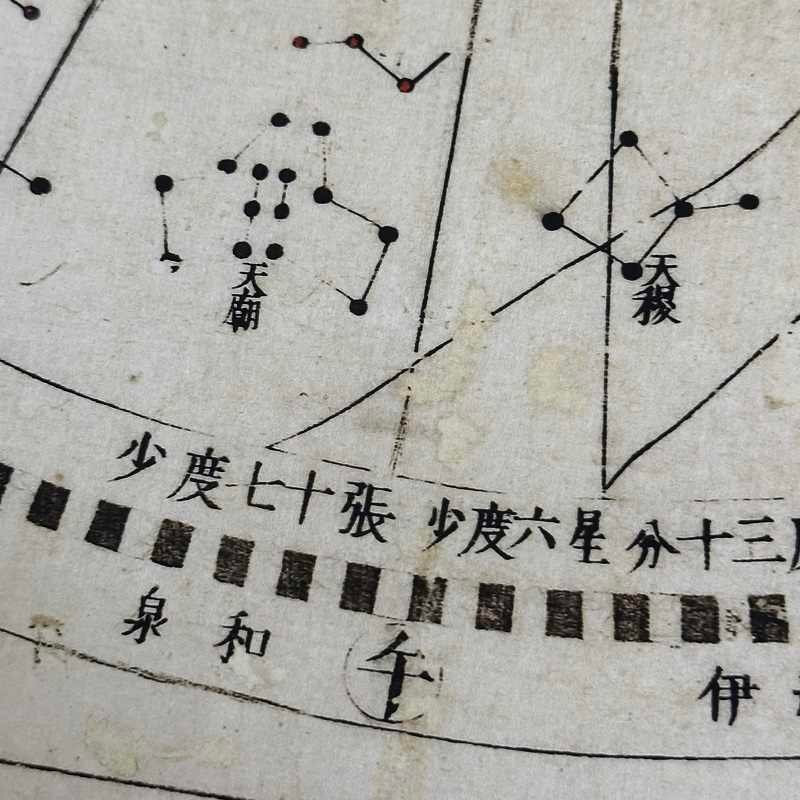 天廟
天稷
三十分 星六度少 張十七度少
伊 午 和泉